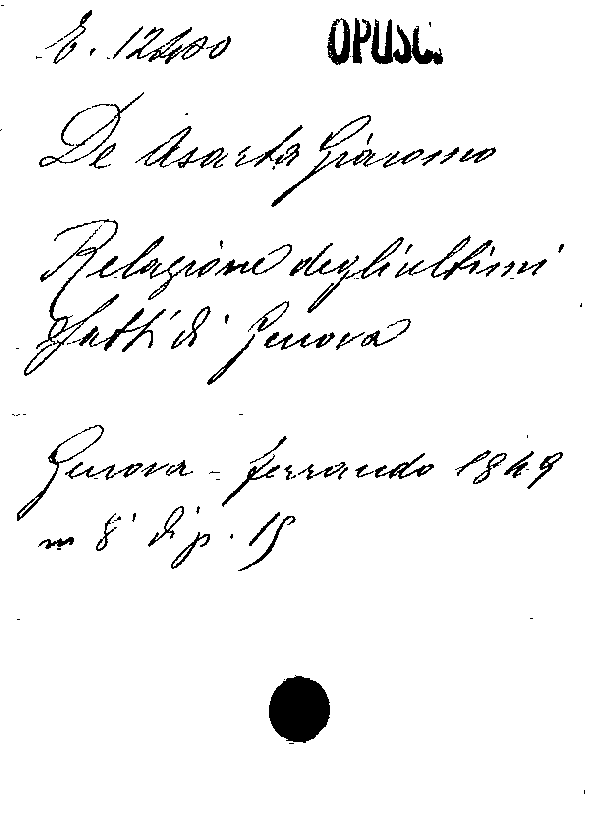 E. 12400 OPUSC.
De Asarta Giacomo
Relazione degli ultimi
fatti di Genova
Genova - Ferrando 1849
in 8° di p. 15